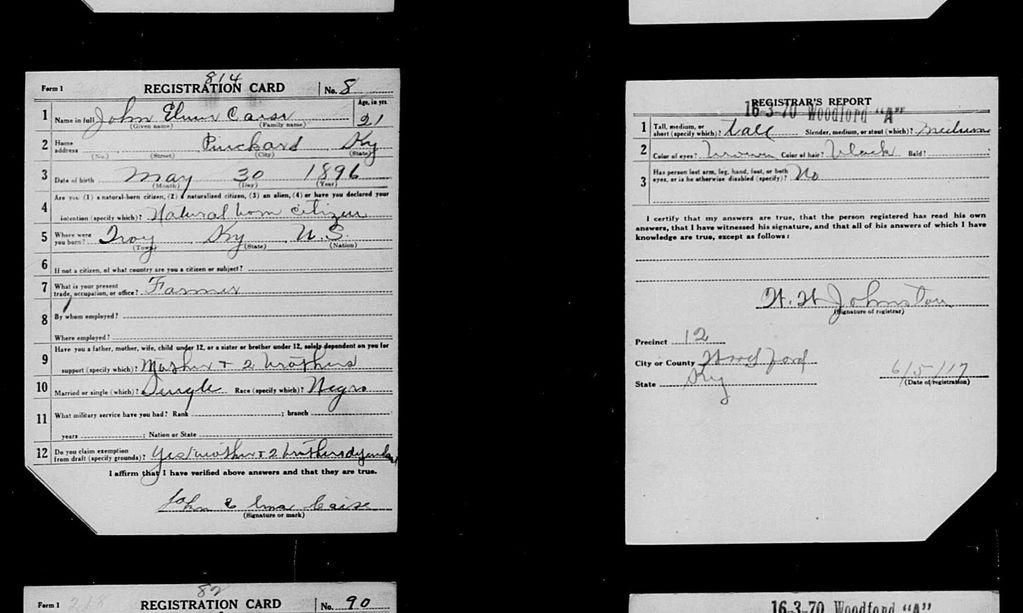 814
Form 1 REGISTRATION CARD No. 8
1 Name in full John Elmer Caise Age, in yrs. 21
(Given name) (Family name)
2 Home address Pinckard Ky
(No.) (Street) (City) (State)
3 Date of birth May 30 1896
(Month) (Day) (Year)
4 Are you (1) a natural-born citizen, (2) a naturalized citizen, (3) an alien, (4) or have you declared your
intention (specify which)? Natural born citizen
5 Where were you born? Troy Ky U.S.
(Town) (State) (Nation)
6 If not a citizen, of what country are you a citizen or subject?
7 What is your present trade, occupation, or office? Farmer
8 By whom employed?
Where employed?
9 Have you a father, mother, wife, child under 12, or a sister or brother under 12, solely dependent on you for
support (specify which)? Mother + 2 brothers
10 Married or single (which)? Single Race (specify which)? Negro
11 What military service have you had? Rank ; branch
years ; Nation or State
12 Do you claim exemption from draft (specify grounds)? Yes mother + 2 brothers
I affirm that I have verified above answers and that they are true.
John Elmer Caise
(Signature or mark)
82
Form 1 218 REGISTRATION CARD No. 90
REGISTRAR'S REPORT
16-3-70 Woodford "A"
1 Tall, medium, or short (specify which)? tall Slender, medium, or stout (which)? medium
2 Color of eyes? brown Color of hair? black Bald?
3 Has person lost arm, leg, hand, foot, or both eyes, or is he otherwise disabled (specify)? No
I certify that my answers are true, that the person registered has read his own
answers, that I have witnessed his signature, and that all of his answers of which I have
knowledge are true, except as follows:
H. H Johnston
(Signature of registrar)
Precinct 12
City or County Woodford
State Ky
6/5/17
(Date of registration)
16-3-70 Woodford "A"